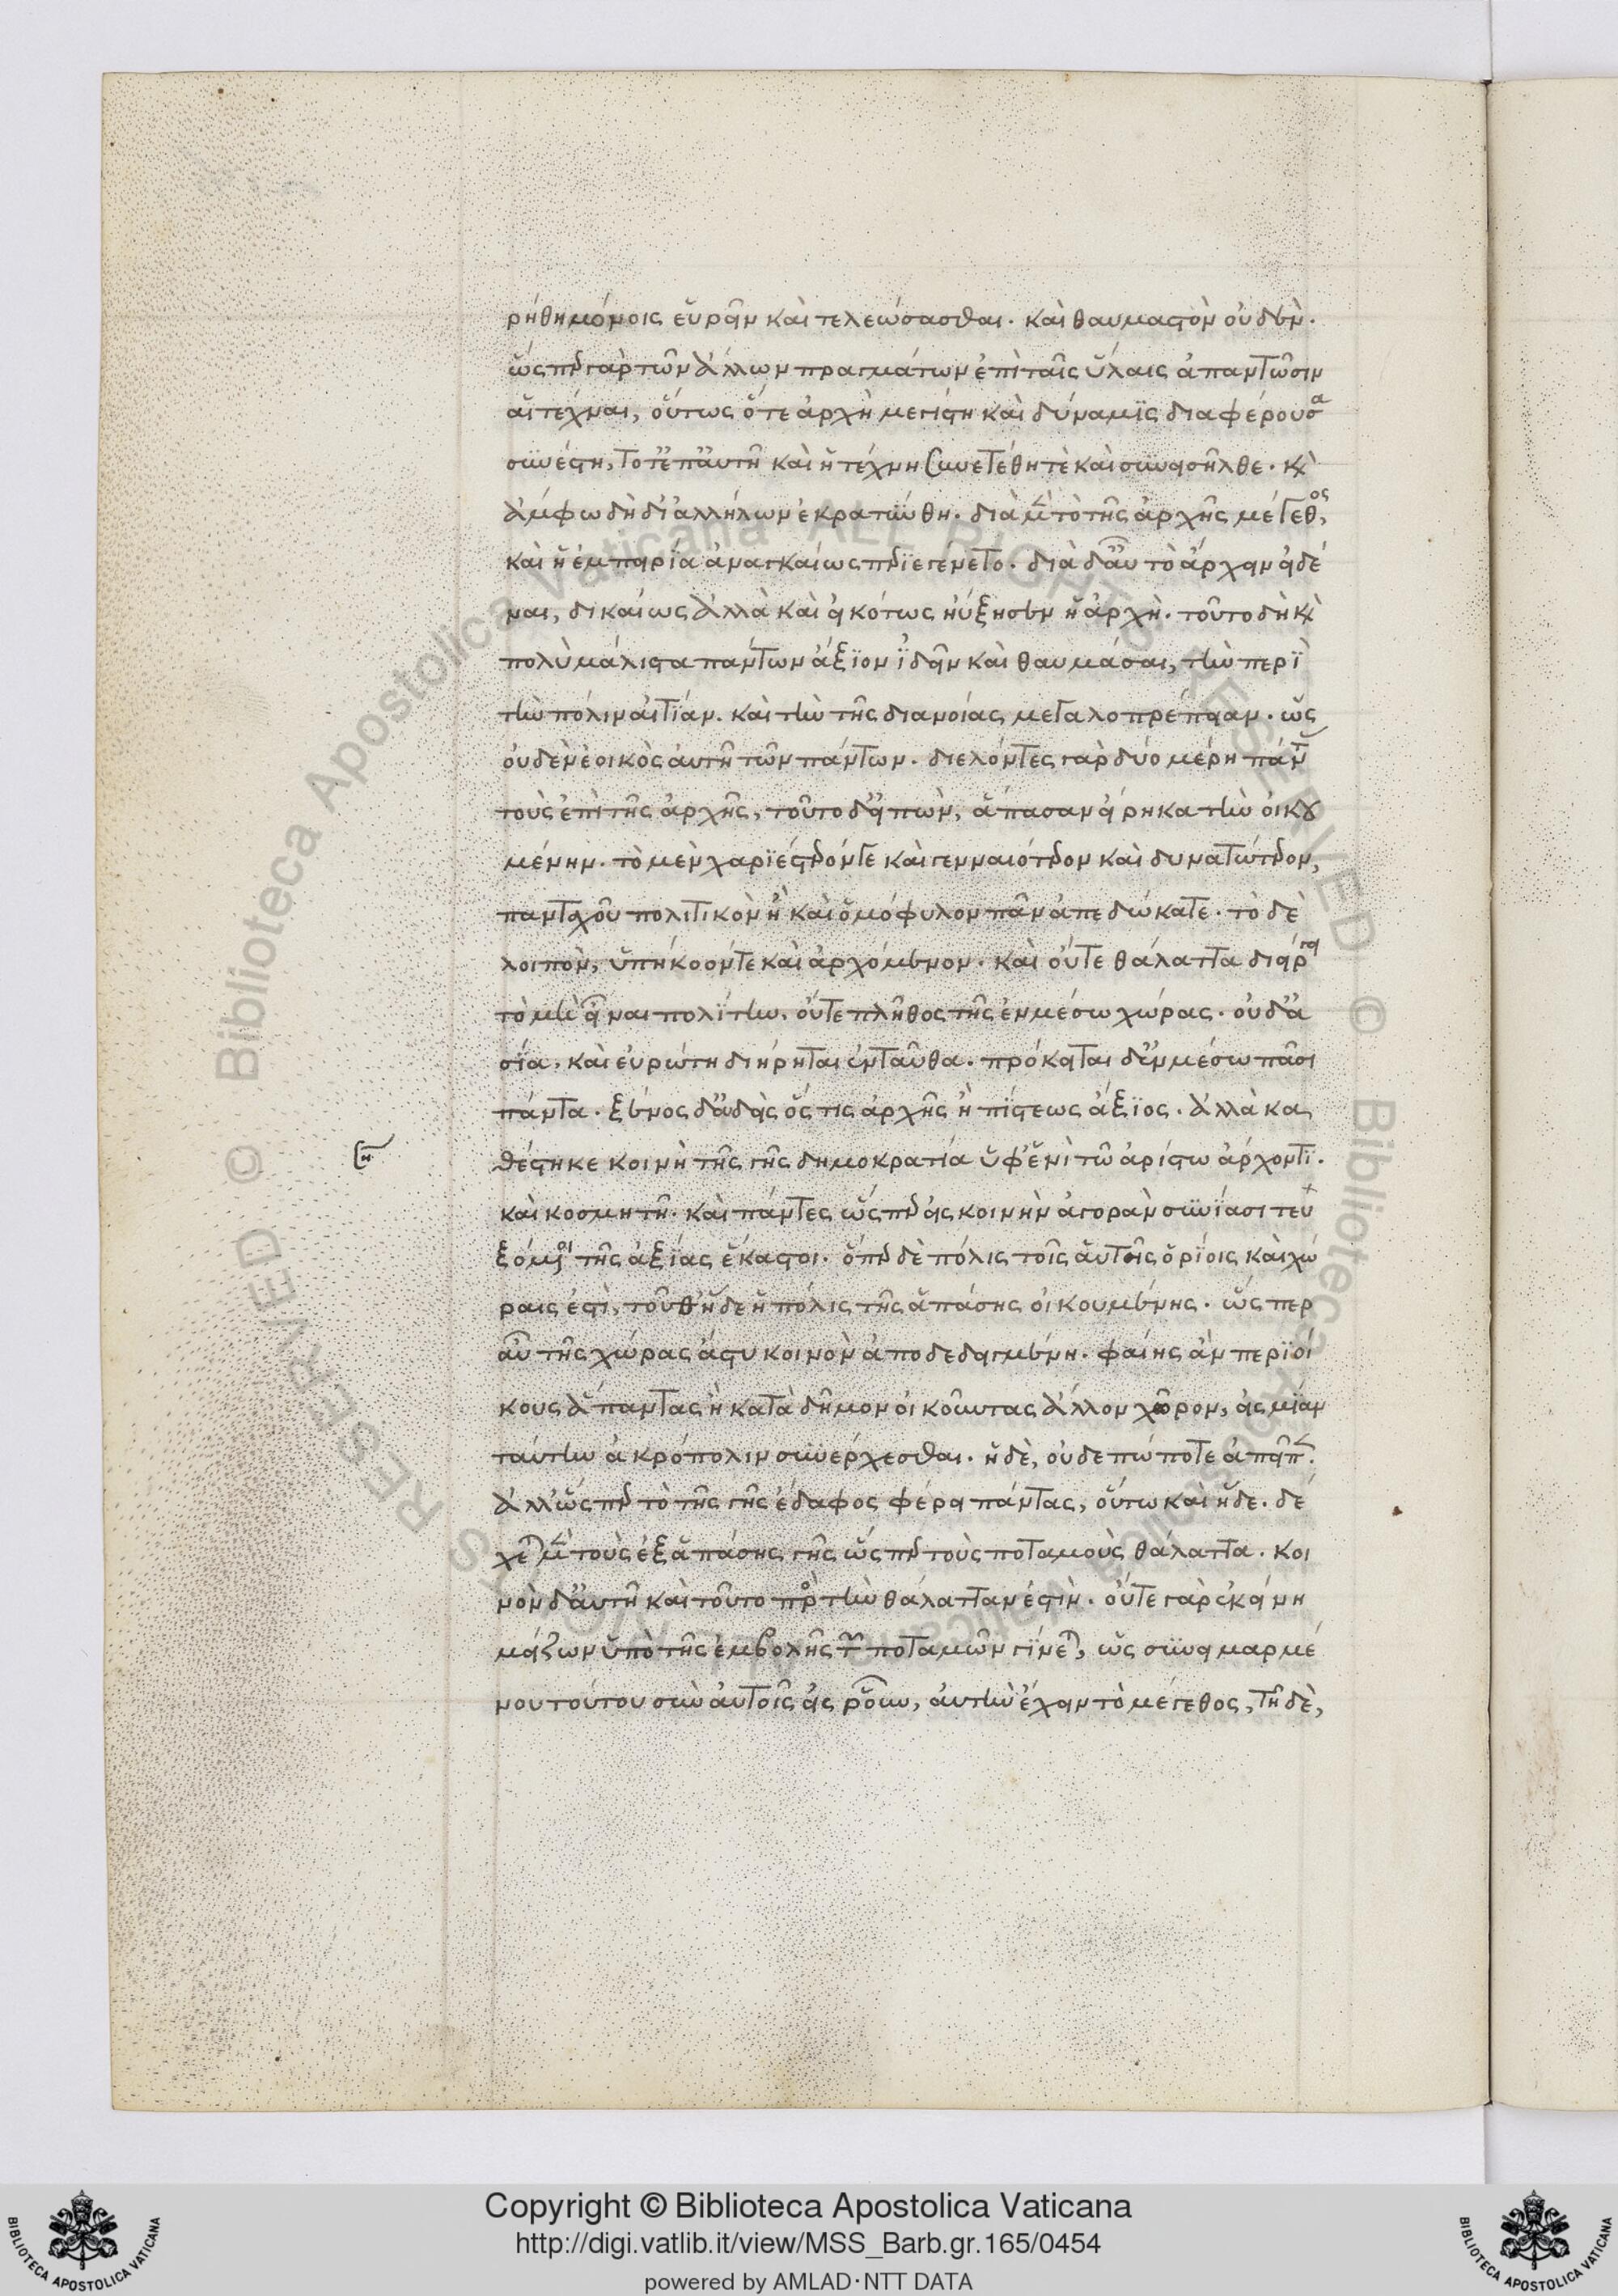 ρήθη μόνοις εὑρεῖν καὶ τελεώσασθαι. καὶ θαυμαστὸν οὐδέν.
ὥσπερ γὰρ τῶν ἄλλων πραγμάτων ἐπὶ ταῖς ὕλαις ἀπαντῶσιν
αἱ τέχναι, οὕτως ὅτε ἀρχὴ μεγίστη καὶ δύναμις διαφέρουσα
συνέστη, τότ' ἐπ' αὐτῇ καὶ ἡ τέχνη συνετέθη τὲ καὶ συνεισῆλθε. καὶ
ἄμφω δὴ δι' ἀλλήλων ἐκρατύνθη. διὰ μὲν τὸ τῆς ἀρχῆς μέγεθος,
καὶ ἡ ἐμπειρία ἀναγκαίως περιεγένετο. διὰ δ' αὖ τὸ ἄρχειν εἰδέ
ναι, δικαίως ἀλλὰ καὶ εἰκότως ηὔξησεν ἡ ἀρχὴ. τοῦτο δὴ καὶ
πολὺ μάλιστα πάντων ἄξιον ἰδεῖν καὶ θαυμάσαι, τὴν περὶ
τὴν πόλιν αἰτίαν. καὶ τὴν τῆς διανοίας μεγαλοπρέπειαν. ὡς
οὐδὲν ἐοικὸς αὐτῇ τῶν πάντων. διελόντες γὰρ δύο μέρη πάντας
τοὺς ἐπὶ τῆς ἀρχῆς, τοῦτο δ' εἰπὼν, ἅπασαν εἴρηκα τὴν οἰκου
μένην. τὸ μὲν χαριέστερόν τε καὶ γενναιότερον καὶ δυνατώτερον,
πανταχοῦ πολιτικὸν ἢ καὶ ὁμόφυλον πᾶν ἀπεδώκατε. τὸ δὲ
λοιπὸν, ὑπήκοόν τε καὶ ἀρχόμενον. καὶ οὔτε θάλαττα διείργει
τὸ μὴ εἶναι πολίτην. οὔτε πλῆθος τῆς ἐν μέσω χώρας. οὐδ' ἀ
σία. καὶ εὐρώπη διήρηται ἐνταῦθα. πρόκειται δ' ἐν μέσω πᾶσι
πάντα. ξένος δ' οὐδεὶς ὅς τις ἀρχῆς ἢ πίστεως ἄξιος. ἀλλὰ κα
θέστηκε κοινὴ τῆς γῆς δημοκρατία ὑφ' ἑνὶ τῶ ἀρίστω ἄρχοντι.
καὶ κοσμητῇ. καὶ πάντες ὥσπερ εἰς κοινὴν ἀγορὰν συνίασι τευ
ξόμενοι τῆς ἀξίας ἕκαστοι. ὅπερ δὲ πόλις τοῖς αὑτοῖς ὁρίοις καὶ χώ
ραις ἐστὶ, τοῦθ' ἥδε ἡ πόλις τῆς ἁπάσης οἰκουμένης. ὥσπερ
αὖ τῆς χώρας ἄστυ κοινὸν ἀποδεδειγμένη. φαίης ἂν περιοί
κους ἅπαντας ἢ κατὰ δῆμον οἰκοῦντας ἄλλον χῶρον, εἰς μίαν
ταύτην ἀκρόπολιν συνέρχεσθαι. ἡ δὲ, οὐδεπώποτε ἀπεῖπεν.
ἀλλ' ὥσπερ τὸ τῆς γῆς ἔδαφος φέρει πάντας, οὕτω καὶ ἥδε. δέ
χεται μὲν τοὺς ἐξ ἁπάσης γῆς ὥσπερ τοὺς ποταμοὺς θάλαττα. κοι
νὸν δ' αὐτῇ καὶ τοῦτο πρὸς τὴν θάλατταν ἐστὶν. οὔτε γὰρ ἐκείνη
μείζων ὑπὸ τῆς ἐμβολῆς τῶν ποταμῶν γίνεται, ὡς συνειμαρμέ
νου τούτου σὺν αὐτοῖς εἰσροῦν, αὐτὴν ἔχειν τὸ μέγεθος, τῇδε,